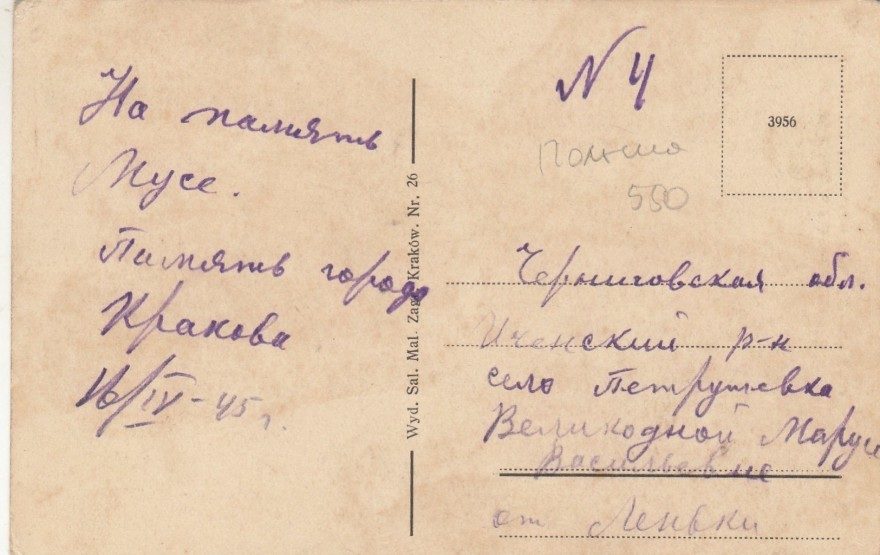 На память
Мусе.
Память города
Кракова
16/IV-45 г.
Wyd. Sal. Mal. Zag. Kraków. Nr. 26
N 4
Польша
550
3956
Черниговская обл.
Иченский р-н
село Петрушевка
Великодной Марусе
Васильевне
от Леньки